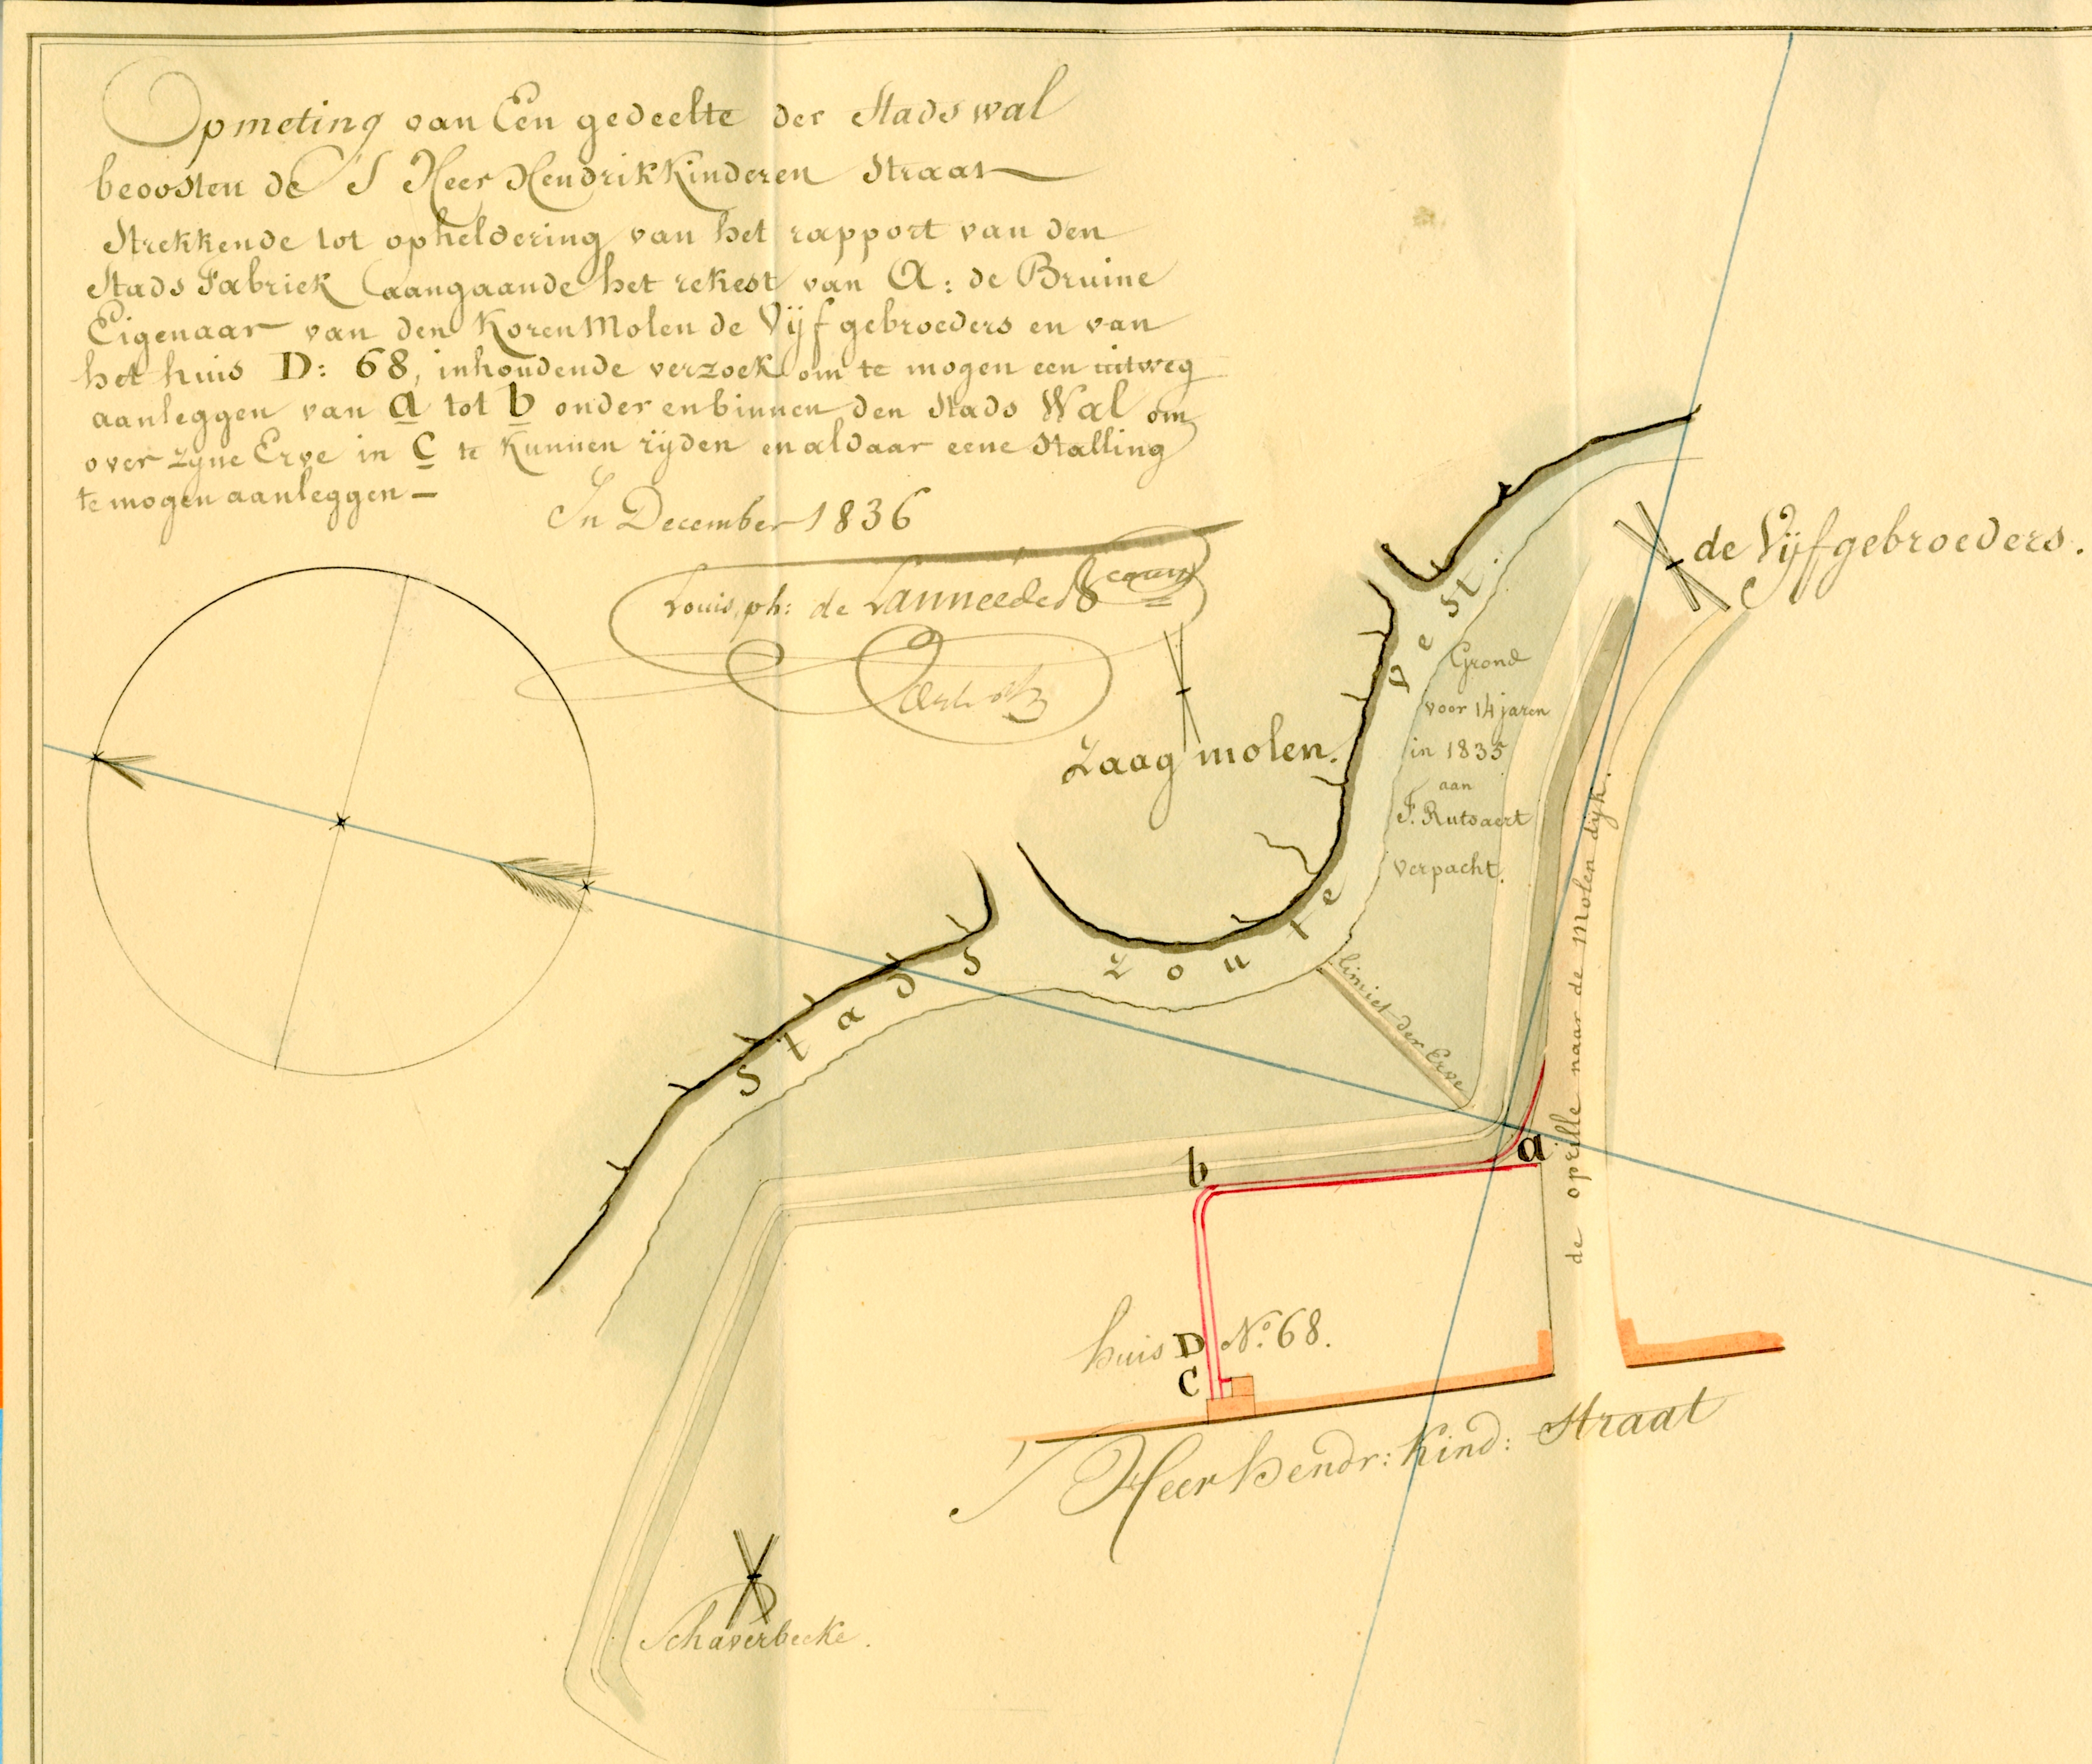 Opmeting van Een gedeelte der Stads wal
beoosten de S Heer Hendrikkinderen Straat
Strekkende tot opheldering van het rapport van den
Stads Fabriek aangaande het rekest van A: de Bruine
Eigenaar van den Koren Molen de Vijf gebroeders en van
het huis D: 68, inhoudende verzoek om te mogen een uitweg
aanleggen van a tot b onder en binnen den Stads Wal om
over zyne Erve in C te kunnen rijden en aldaar eene Stalling
te mogen aanleggen –
In December 1836
Louis. ph: de
de Vijfgebroeders.
Zaag molen.
Stads Zoute Vest
Grond
voor 14 jaren
in 1835
aan
F. Rutsaert
verpacht.
limiet der Erve
de oprille naar de Molen dijk.
a
b
huis D No. 68.
C
S Heer hendr: Kind: Straat
Schaverbecke.